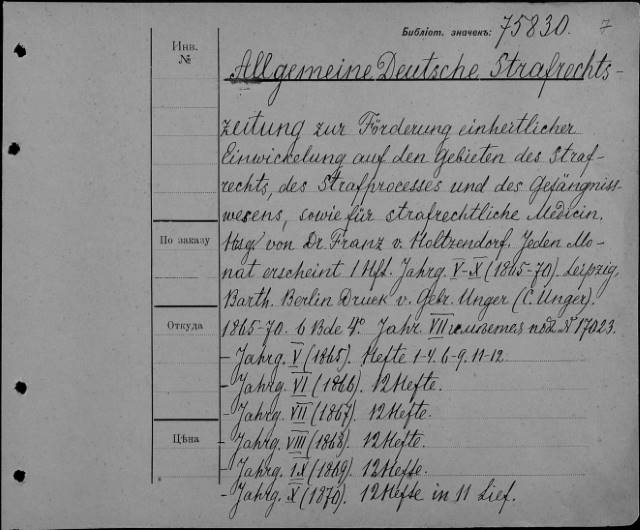 Библіот. значекъ: 75830. 7
Инв.
№
Allgemeine Deutsche Strafrechts-
zeitung zur Förderung einheitlicher
Einwickelung auf den Gebieten des Straf-
rechts, des Strafprocesses und des Gefängniss-
wesens, sowie für strafrechtliche Medicin.
По заказу
Hsg. von Dr. Franz v. Holtzendorf. Jeden Mo-
nat erscheint 1 Hft. Jahrg. V-X (1865-70). Leipzig,
Barth. Berlin Druck v. Gebr. Unger (C. Unger).
Откуда
1865-70. 6 Bde 4°. Jahr. VII имѣется под № 17023.
- Jahrg. V (1865). Hefte 1-4. 6-9. 11-12
- Jahrg. VI (1866). 12 Hefte.
- Jahrg. VII (1867). 12 Hefte.
Цѣна
- Jahrg. VIII (1868). 12 Hefte.
- Jahrg. IX (1869). 12 Hefte.
- Jahrg. X (1870). 12 Hefte in 11 Lief.